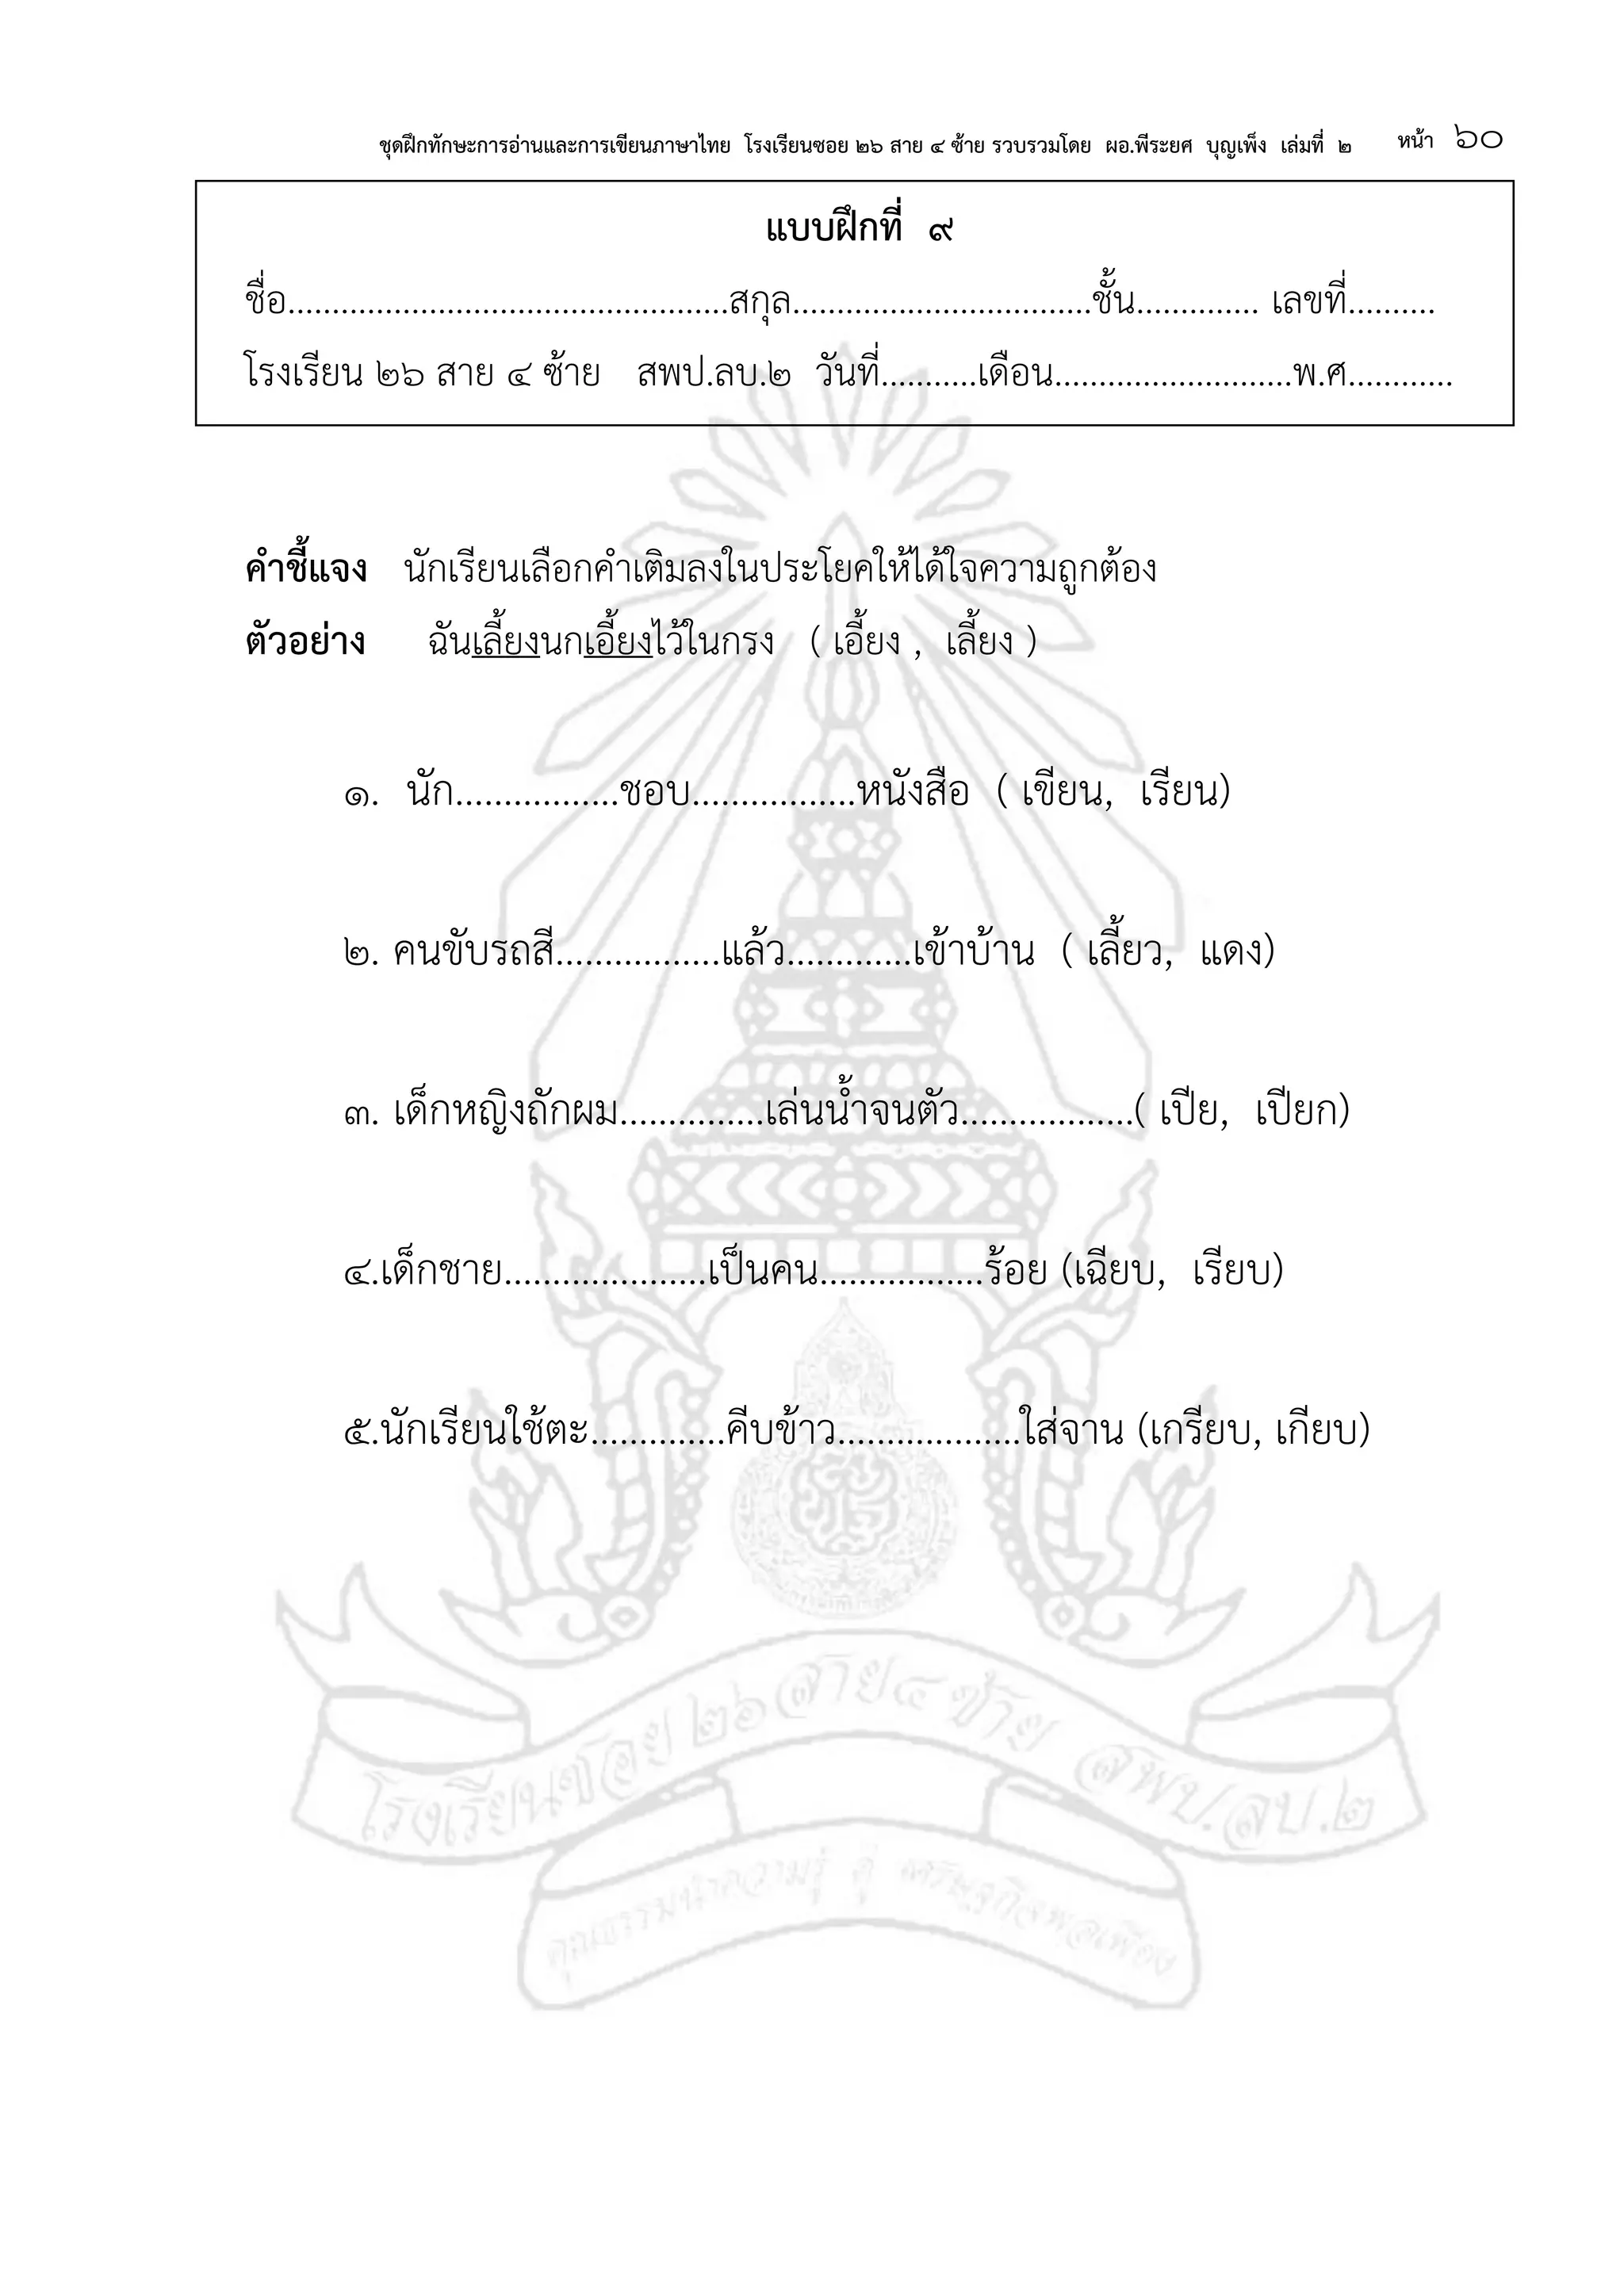 ชุดฝึกทักษะการอ่านและการเขียนภาษาไทย โรงเรียนซอย ๒๖ สาย ๔ ซ้าย รวบรวมโดย ผอ.พีระยศ บุญเพ็ง เล่มที่ ๒ หน้า ๖๐
แบบฝึกที่ ๙
ชื่อ..................................................สกุล..................................ชั้น.............. เลขที่..........
โรงเรียน ๒๖ สาย ๔ ซ้าย สพป.ลบ.๒ วันที่...........เดือน...........................พ.ศ............
คำชี้แจง นักเรียนเลือกคำเติมลงในประโยคให้ได้ใจความถูกต้อง
ตัวอย่าง ฉันเลี้ยงนกเอี้ยงไว้ในกรง ( เอี้ยง , เลี้ยง )
๑. นัก.................ชอบ.................หนังสือ ( เขียน, เรียน)
๒. คนขับรถสี.................แล้ว.............เข้าบ้าน ( เลี้ยว, แดง)
๓. เด็กหญิงถักผม...............เล่นน้ำจนตัว..................( เปีย, เปียก)
๔.เด็กชาย.....................เป็นคน.................ร้อย (เฉียบ, เรียบ)
๕.นักเรียนใช้ตะ..............คีบข้าว...................ใส่จาน (เกรียบ, เกียบ)
โรงเรียนซอย ๒๖ สาย ๔ ซ้าย สพป.ลบ.๒
คุณธรรมนำความรู้ สู่ เศรษฐกิจพอเพียง